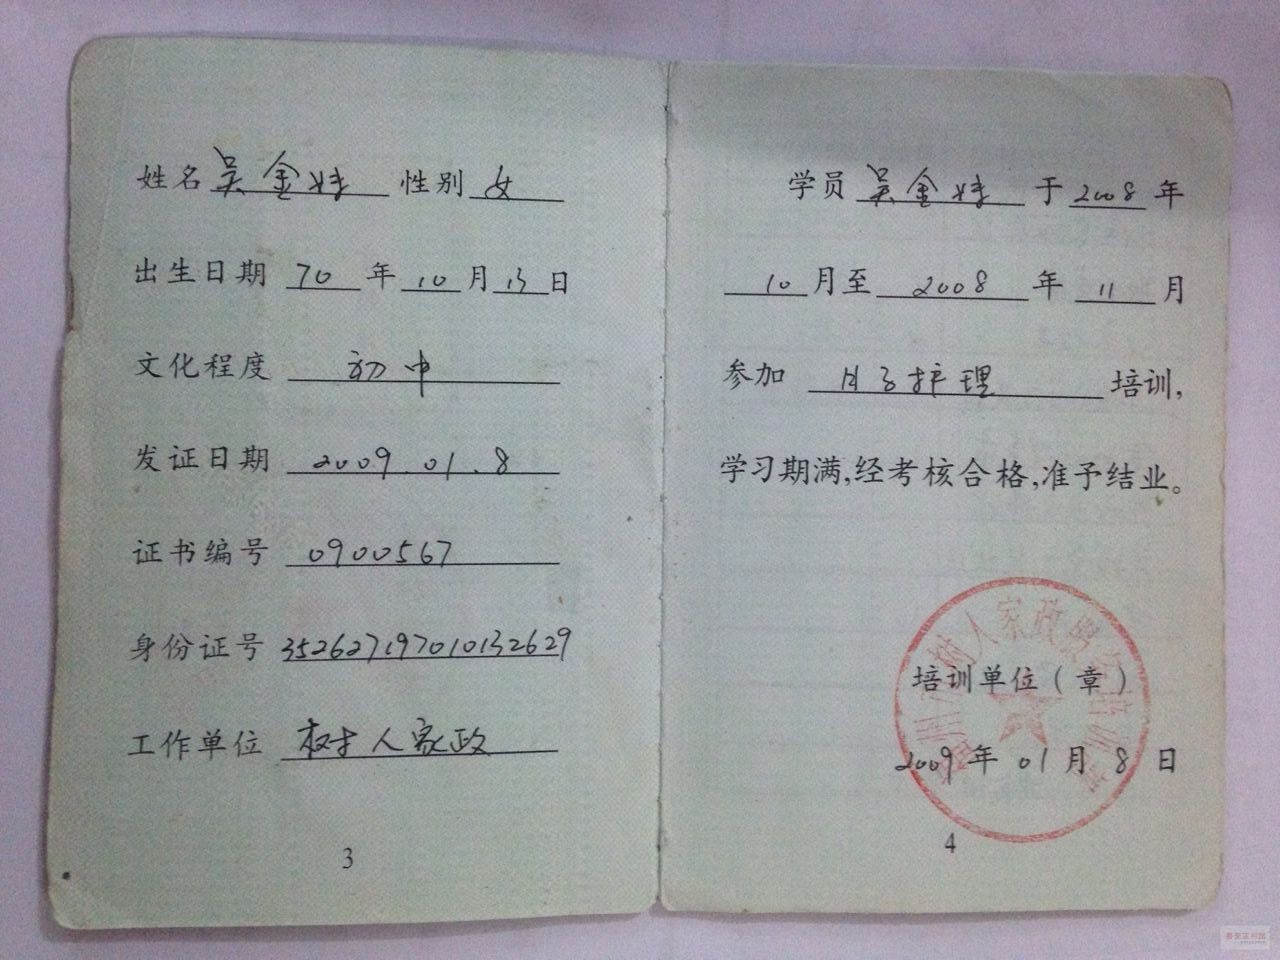 姓名 吴金娣 性别 女
出生日期 70 年 10 月 13 日
文化程度 初中
发证日期 2009.01.8
证书编号 0900567
身份证号 352627197010132629
工作单位 树人家政
3
学员 吴金娣 于 2008 年
10 月至 2008 年 11 月
参加 月子护理 培训,
学习期满,经考核合格,准予结业。
树人家政服务培训
培训单位(章)
2009 年 01 月 8 日
4